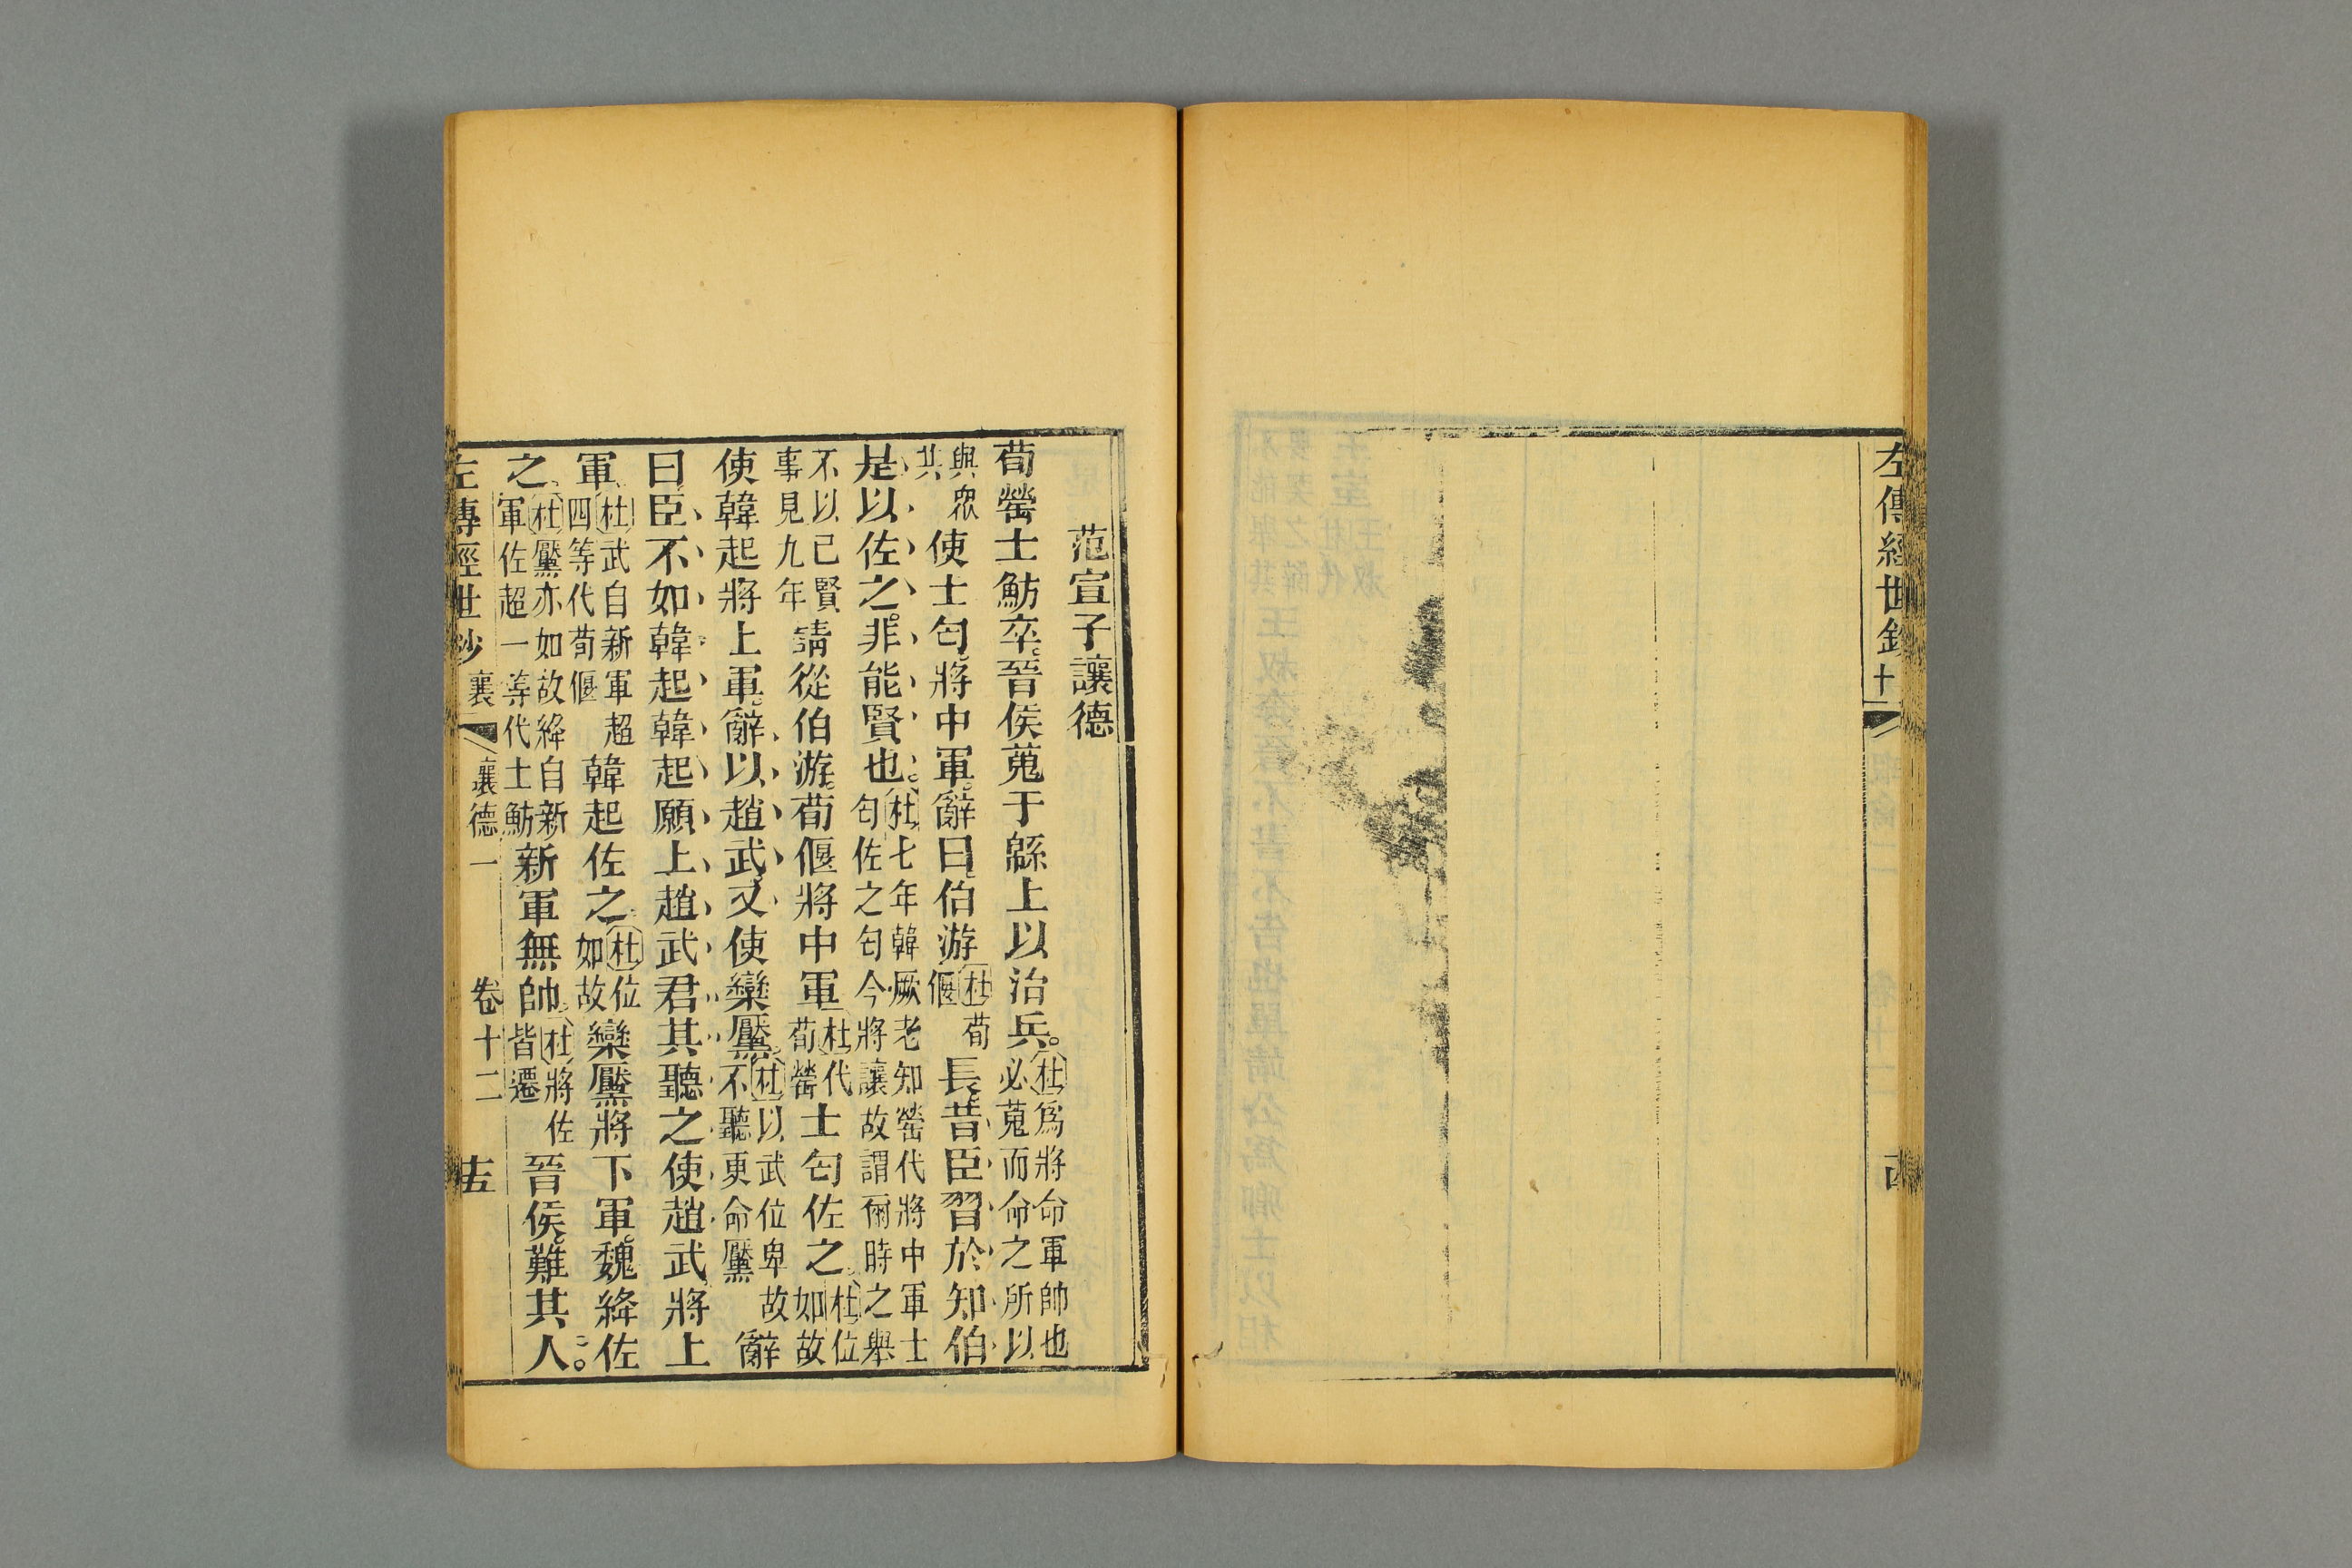 左傳經世鈔
范宣子讓德
荀罃士魴卒晉侯蒐于緜上以治兵杜爲將命軍帥也必蒐而命之所以
與衆共使士匄將中軍辭曰伯游杜荀偃長昔臣習於知伯
是以佐之非能賢也杜七年韓厥老知罃代將中軍士匄佐之匄今將讓故謂爾時之舉
不以己賢事見九年請從伯游荀偃將中軍杜代荀罃士匄佐之杜位如故
使韓起將上軍辭以趙武又使欒黶杜以武位卑故不聽更命黶辭
曰臣不如韓起韓起願上趙武君其聽之使趙武將上
軍杜武自新軍超四等代荀偃韓起佐之杜位如故欒黶將下軍魏絳佐
之杜黶亦如故絳自新軍佐超一等代士魴新軍無帥杜將佐皆遷晉侯難其人
左傳經世鈔 襄 讓德一 卷十二 十五